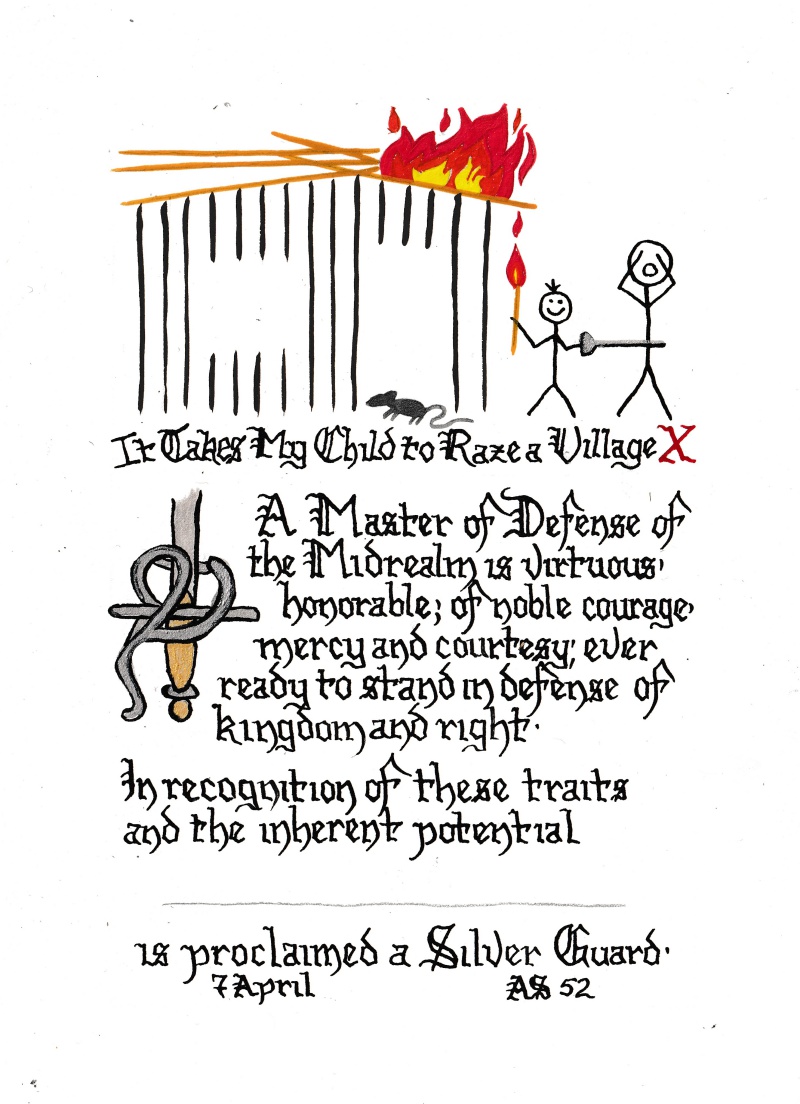 It Takes My Child to Raze a Village X
A Master of Defense of
the Midrealm is virtuous,
honorable; of noble courage,
mercy and courtesy; ever
ready to stand in defense of
kingdom and right.
In recognition of these traits
and the inherent potential
is proclaimed a Silver Guard.
7 April AS 52